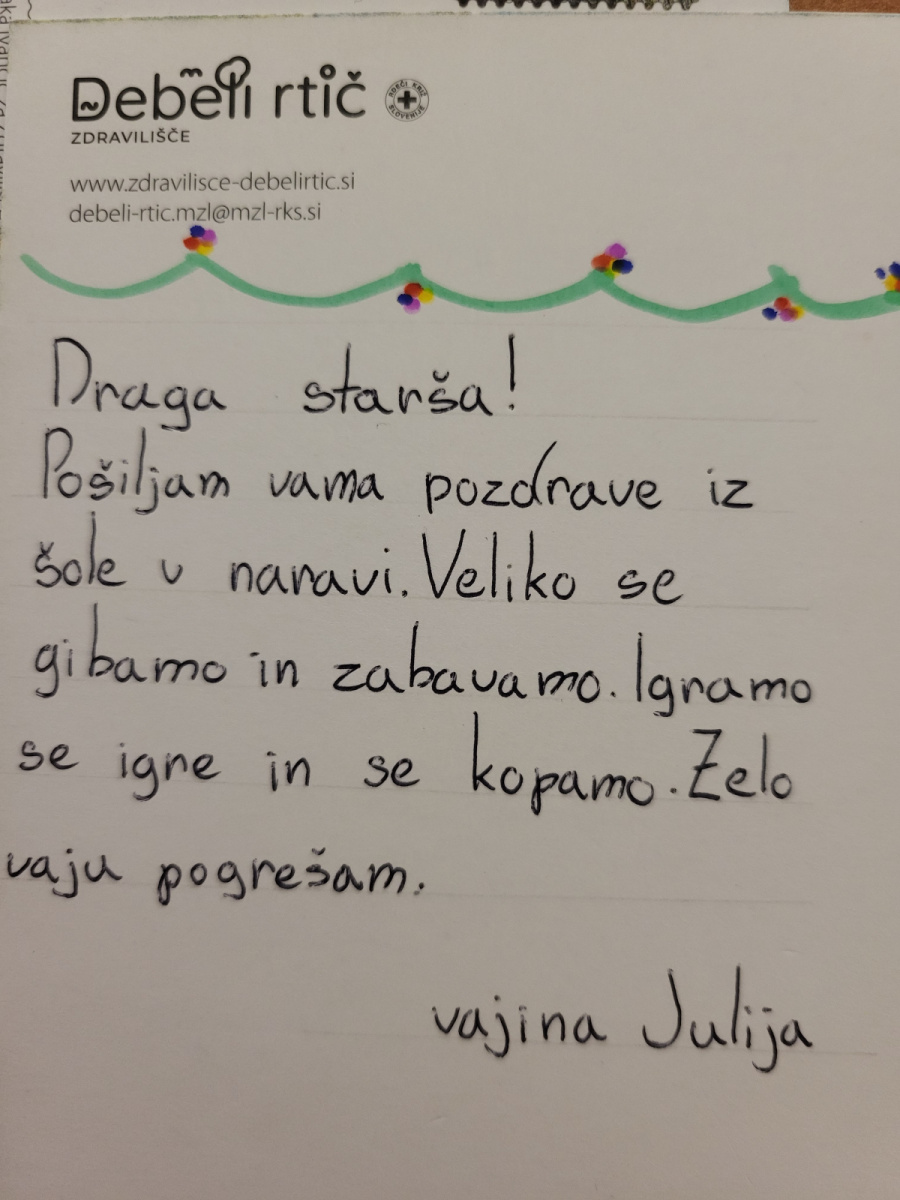 Debeli rtič
RDEČI KRIŽ SLOVENIJE
ZDRAVILIŠČE
www.zdravilisce-debelirtic.si
debeli-rtic.mzl@mzl-rks.si
Draga starša!
Pošiljam vama pozdrave iz
šole v naravi. Veliko se
gibamo in zabavamo. Igramo
se igre in se kopamo. Zelo
vaju pogrešam.
vajina Julija